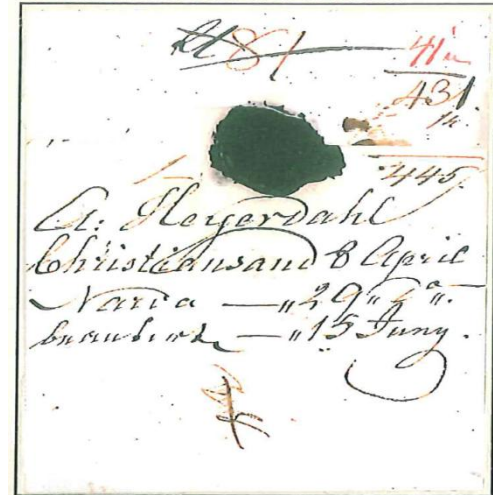 81 41
431
14
445.
A: Heyerdahl
Christiansand 8 April
Narva — „ 29 „ d°.
beantw — „ 15 Juny.